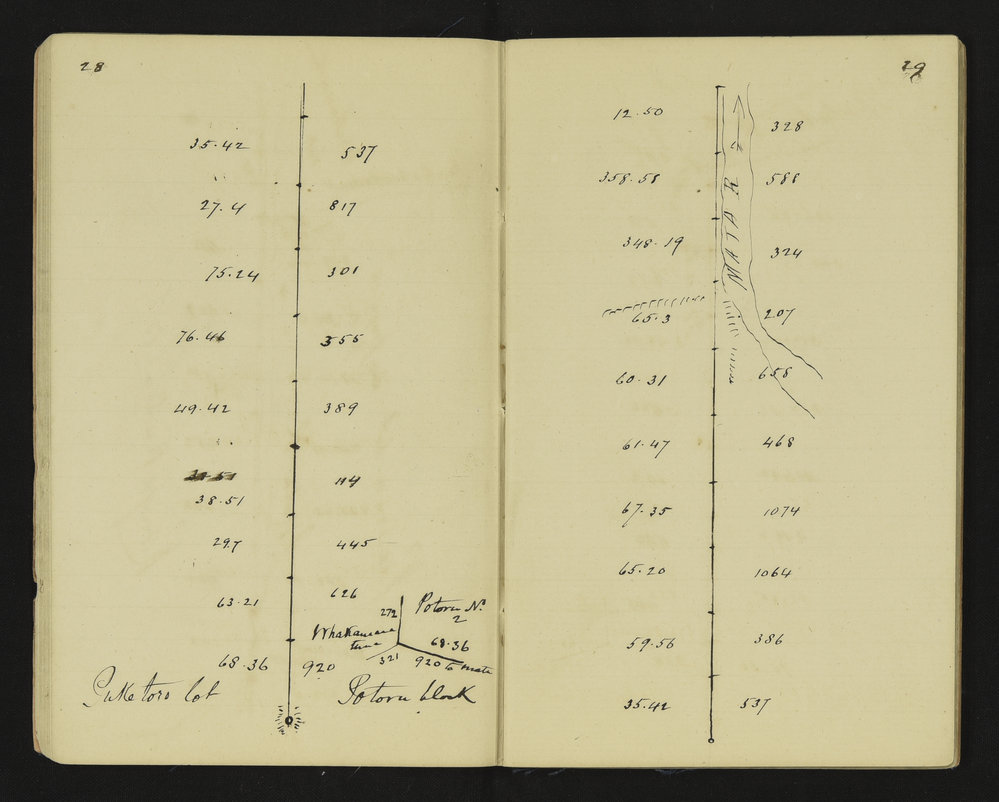 28
35.42 537
27.4 817
75.24 301
76.46 355
49.42 389
114
38.51
29.7 445
63.21 626
272 Potoru No
2
68.36
321 920 to mata
68.36 920
Puketoro lot Potoru block
29
12.50 328
358.58 588
348.19 324
MATA R
65.3 207
60.31 658
61.47 468
67.35 1074
65.20 1064
59.56 386
35.42 537